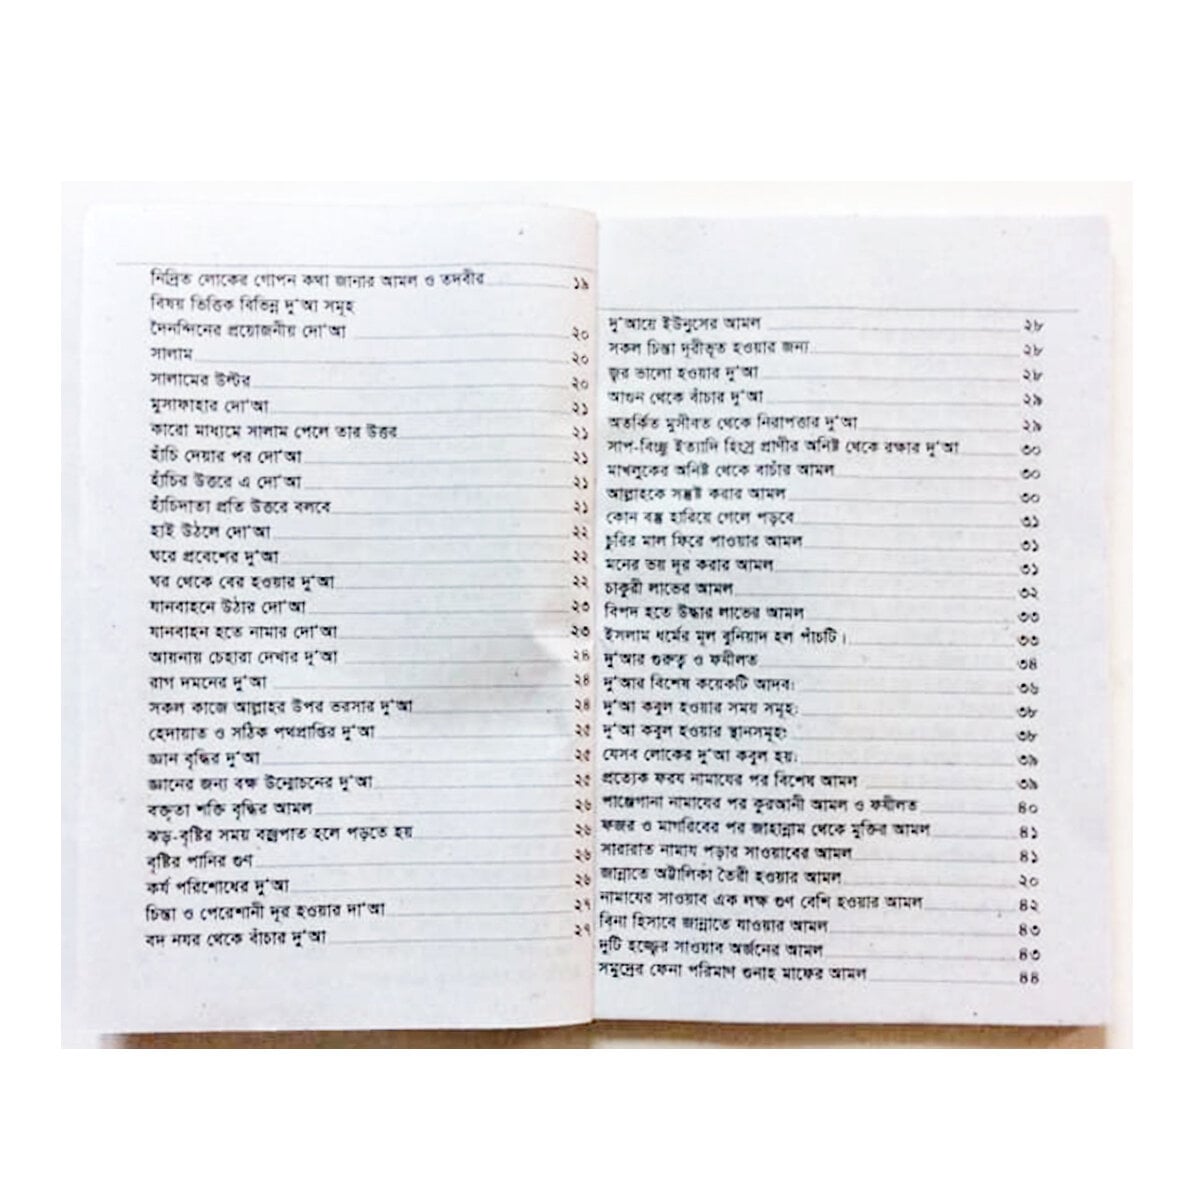 নিদ্রিত লোকের গোপন কথা জানার আমল ও তদবীর ১৯
বিষয় ভিত্তিক বিভিন্ন দু'আ সমূহ
দৈনন্দিনের প্রয়োজনীয় দো'আ ২০
সালাম ২০
সালামের উত্তর ২০
মুসাফাহার দো'আ ২১
কারো মাধ্যমে সালাম পেলে তার উত্তর ২১
হাঁচি দেয়ার পর দো'আ ২১
হাঁচির উত্তরে এ দো'আ ২১
হাঁচিদাতা প্রতি উত্তরে বলবে ২১
হাই উঠলে দো'আ ২২
ঘরে প্রবেশের দু'আ ২২
ঘর থেকে বের হওয়ার দু'আ ২২
যানবাহনে উঠার দো'আ ২৩
যানবাহন হতে নামার দো'আ ২৩
আয়নায় চেহারা দেখার দু'আ ২৪
রাগ দমনের দু'আ ২৪
সকল কাজে আল্লাহর উপর ভরসার দু'আ ২৪
হেদায়াত ও সঠিক পথপ্রাপ্তির দু'আ ২৫
জ্ঞান বৃদ্ধির দু'আ ২৫
জ্ঞানের জন্য বক্ষ উন্মোচনের দু'আ ২৫
বক্তৃতা শক্তি বৃদ্ধির আমল ২৬
ঝড়-বৃষ্টির সময় বজ্রপাত হলে পড়তে হয় ২৬
বৃষ্টির পানির গুণ ২৬
কর্য পরিশোধের দু'আ ২৬
চিন্তা ও পেরেশানী দূর হওয়ার দা'আ ২৭
বদ নযর থেকে বাঁচার দু'আ ২৭
দু'আয়ে ইউনুসের আমল ২৮
সকল চিন্তা দূরীভূত হওয়ার জন্য ২৮
জ্বর ভালো হওয়ার দু'আ ২৮
আগুন থেকে বাঁচার দু'আ ২৯
অতর্কিত মুসীবত থেকে নিরাপত্তার দু'আ ২৯
সাপ-বিচ্ছু ইত্যাদি হিংস্র প্রাণীর অনিষ্ট থেকে রক্ষার দু'আ ৩০
মাখলুকের অনিষ্ট থেকে বাচাঁর আমল ৩০
আল্লাহকে সন্তুষ্ট করার আমল ৩০
কোন বস্তু হারিয়ে গেলে পড়বে ৩১
চুরির মাল ফিরে পাওয়ার আমল ৩১
মনের ভয় দূর করার আমল ৩১
চাকুরী লাভের আমল ৩২
বিপদ হতে উদ্ধার লাভের আমল ৩৩
ইসলাম ধর্মের মূল বুনিয়াদ হল পাঁচটি। ৩৩
দু'আর গুরুত্ব ও ফযীলত ৩৪
দু'আর বিশেষ কয়েকটি আদব: ৩৬
দু'আ কবুল হওয়ার সময় সমূহ: ৩৮
দু'আ কবুল হওয়ার স্থানসমূহঃ ৩৮
যেসব লোকের দু'আ কবুল হয়: ৩৯
প্রত্যেক ফরয নামাযের পর বিশেষ আমল ৩৯
পাঞ্জেগানা নামাযের পর কুরআনী আমল ও ফযীলত ৪০
ফজর ও মাগরিবের পর জাহান্নাম থেকে মুক্তির আমল ৪১
সারারাত নামায পড়ার সাওয়াবের আমল ৪১
জান্নাতে অট্টালিকা তৈরী হওয়ার আমল ২০
নামাযের সাওয়াব এক লক্ষ গুণ বেশি হওয়ার আমল ৪২
বিনা হিসাবে জান্নাতে যাওয়ার আমল ৪৩
দুটি হজ্জের সাওয়াব অর্জনের আমল ৪৩
সমুদ্রের ফেনা পরিমাণ গুনাহ মাফের আমল ৪৪